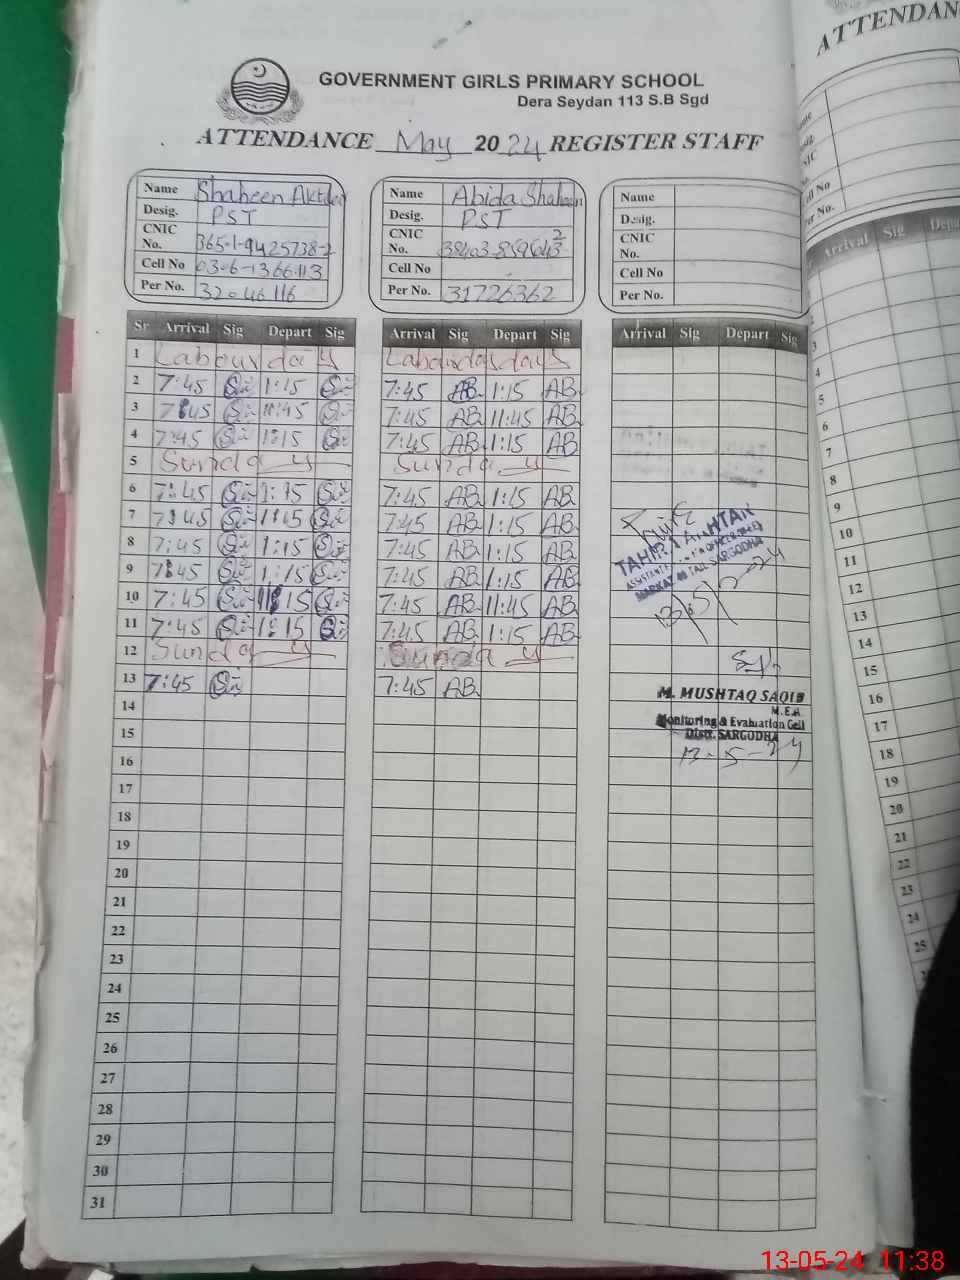 ATTENDAN
GOVERNMENT GIRLS PRIMARY SCHOOL
Dera Seydan 113 S.B Sgd
ATTENDANCE May 2024 REGISTER STAFF
Name Shaheen Name Abida Shaheen Name
Desig. PST Desig. PST Desig.
CNIC No. CNIC No. CNIC No.
Cell No Cell No Cell No
Per No. 32046116 Per No. 31726362 Per No.
Sr Arrival Sig Depart Sig Arrival Sig Depart Sig Arrival Sig Depart Sig Arrival Sig
1 Labour day
2 7:45 1:15 7:45 AB 1:15 AB
3 7:45 11:45 7:45 AB 11:45 AB
4 7:45 1:15 7:45 AB 1:15 AB
5 Sunday Sunday
6 7:45 1:15 7:45 AB 1:15 AB
7 7:45 1:15 7:45 AB 1:15 AB
8 7:45 1:15 7:45 AB 1:15 AB
9 7:45 1:15 7:45 AB 1:15 AB
10 7:45 7:45 AB 11:45 AB
11 7:45 1:15 7:45 AB 1:15 AB
12 Sunday Sunday
13 7:45 7:45 AB
14
15
16
17
18
19
20
21
22
23
24
25
26
27
28
29
30
31
SARGODHA
M. MUSHTAQ SAQIB
M.E.A
Monitoring & Evaluation Cell
Distt. SARGODHA
13-5-24
3
4
5
6
7
8
9
10
11
12
13
14
15
16
17
18
19
20
21
22
23
24
25
13-05-24 11:38